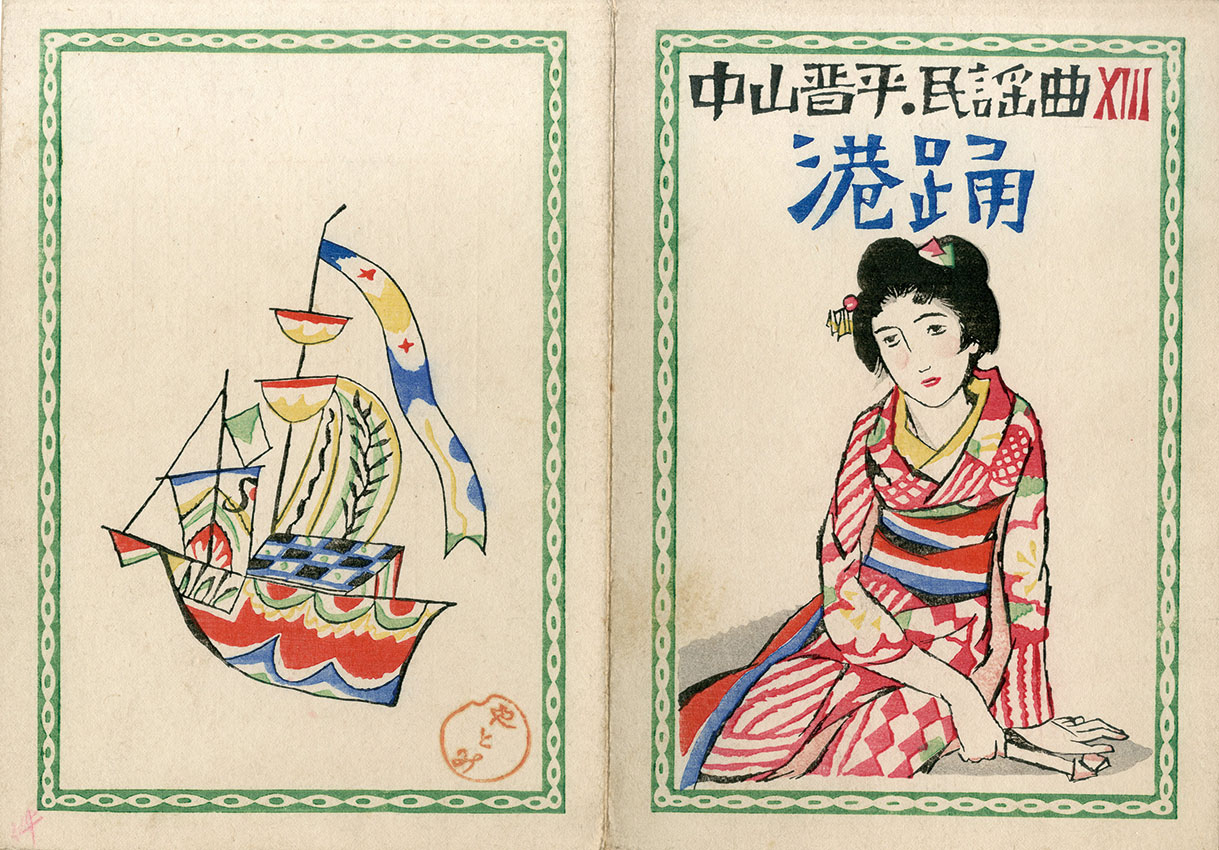 中山晋平.民謡曲XIII
港踊
やとみ